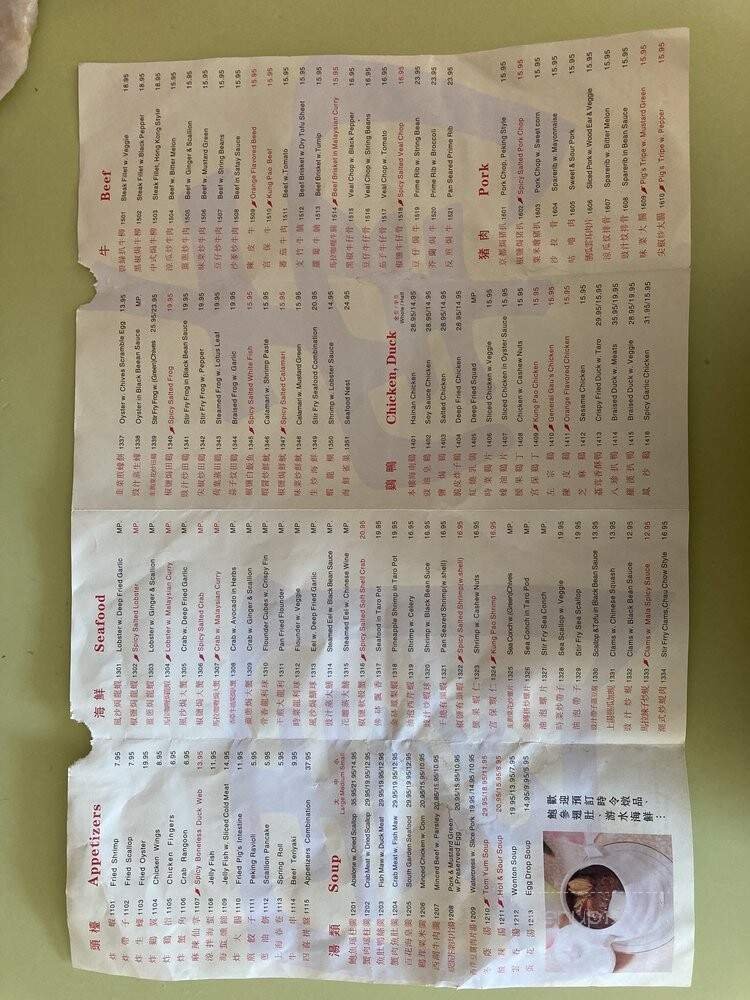 頭檯 Appetizers
炸蝦 1101 Fried Shrimp 7.95
炸帶子 1102 Fried Scallop 7.95
炸生蠔 1103 Fried Oyster 19.95
炸鷄翼 1104 Chicken Wings 8.95
炸鷄指 1105 Chicken Fingers 6.95
炸蟹角 1106 Crab Rangoon 6.95
1107 Spicy Boneless Duck Web 13.95
1108 Jelly Fish 11.95
1109 Jelly Fish w. Sliced Cold Meat 14.95
炸大腸 1110 Fried Pig's Intestine 11.95
1111 Peking Ravioli 5.95
葱油餅 1112 Scallion Pancake 5.95
上海春卷 1113 Spring Roll 5.95
牛串 1114 Beef Teriyaki 9.95
1115 Appetizers Combination 37.95
湯類 Soup
大 中 小
Large Medium Small
1201 Abalone w. Dried Scallop 35.95/21.95/14.95
1202 Crab Meat w. Dried Scallop 29.95/19.95/12.95
1203 Duck Meat w. Fish Maw 29.95/19.95/12.95
1204 Crab Meat w. Fish Maw 29.95/19.95/12.95
1205 South Garden Seafood 29.95/19.95/12.95
1206 Minced Chicken w. Corn 20.95/15.95/10.95
1207 Minced Beef w. Parsley 20.95/15.95/10.95
1208 Pork & Mustard Green w. Preserved Egg 20.95/15.95/10.95
1209 Watercress w. Slice Pork 19.95/14.95/10.95
1210 Tom Yum Soup 29.95/18.95/11.95
1211 Hot & Sour Soup 20.95/15.95/8.95
雲吞湯 1212 Wonton Soup 19.95/13.95/7.95
蛋花湯 1213 Egg Drop Soup 14.95/9.95/5.95
歡迎預訂時令燉品、
鮑參翅肚游水海鮮⋮
海鮮 Seafood
1301 Lobster w. Deep Fried Garlic MP.
椒鹽焗龍蝦 1302 Spicy Salted Lobster MP.
薑葱焗龍蝦 1303 Lobster w. Ginger & Scallion MP.
1304 Lobster w. Malaysian Curry MP.
風沙焗大蟹 1305 Crab w. Deep Fried Garlic MP.
椒鹽焗大蟹 1306 Spicy Salted Crab MP.
1307 Crab w. Malaysian Curry MP.
1308 Crab w. Avocado in Herbs MP.
薑葱焗大蟹 1309 Crab w. Ginger & Scallion MP.
1310 Flounder Cubes w. Crispy Fin MP.
1311 Pan Fried Flounder MP.
1312 Flounder w. Veggie MP.
1313 Eel w. Deep Fried Garlic MP.
豉汁蒸大鱔 1314 Steamed Eel w. Black Bean Sauce MP.
花雕蒸大鱔 1315 Steamed Eel w. Chinese Wine MP.
1316 Spicy Salted Soft Shell Crab 20.95
1317 Seafood in Taro Pot 19.95
1318 Pineapple Shrimp in Taro Pot 19.95
1319 Shrimp w. Celery 16.95
1320 Shrimp w. Black Bean Sauce 16.95
1321 Pan Seared Shrimp(w.shell) 16.95
1322 Spicy Salted Shrimp(w.shell) 16.95
腰果蝦仁 1323 Shrimp w. Cashew Nuts 16.95
宮保蝦仁 1324 Kung Pao Shrimp 16.95
1325 Sea Conch w. (Green)Chives MP.
1326 Sea Conch in Taro Pod MP.
油泡螺片 1327 Stir Fry Sea Conch MP.
時菜炒帶子 1328 Sea Scallop w. Veggie 19.95
油泡帶子 1329 Stir Fry Sea Scallop 19.95
1330 Scallop & Tofu in Black Bean Sauce 13.95
1331 Clams w. Chinese Squash 13.95
豉汁炒蜆 1332 Clams w. Black Bean Sauce 12.95
1333 Clams w. Mala Spicy Sauce 12.95
1334 Stir Frry Clams,Chau Chow Style 16.95
韭菜煎蠔餅 1337 Oyster w. Chives Scramble Egg 13.95
豉汁蒸生蠔 1338 Oyster in Black Bean Sauce MP.
1339 Stir Fry Frog w. (Green)Chives 25.95/23.95
椒鹽焗田鷄 1340 Spicy Salted Frog 19.95
豉汁炒田鷄 1341 Stir Fry Frog in Black Bean Sauce 19.95
尖椒炒田鷄 1342 Stir Fry Frog w. Pepper 19.95
荷葉蒸田鷄 1343 Steamed Frog w. Lotus Leaf 19.95
蒜子炆田鷄 1344 Braised Frog w. Garlic 19.95
椒鹽白飯魚 1345 Spicy Salted White Fish 15.95
蝦醬炒鮮魷 1346 Calamari w. Shrimp Paste 15.95
椒鹽焗鮮魷 1347 Spicy Salted Calamari 15.95
味菜炒鮮魷 1348 Calamari w. Mustard Green 15.95
生炒海鮮 1349 Stir Fry Seafood Combination 20.95
蝦龍糊 1350 Shrimp w. Lobster Sauce 14.95
海鮮雀巢 1351 Seafood Nest 24.95
鷄 鴨 Chicken, Duck
全隻/半隻
Whole / Half
本樓海南鷄 1401 Hainan Chicken 28.95/14.95
豉油皇鷄 1402 Soy Sauce Chicken 28.95/14.95
鹽焗鷄 1403 Salted Chicken 28.95/14.95
脆皮炸子鷄 1404 Deep Fried Chicken 28.95/14.95
紅燒乳鴿 1405 Deep Fried Squad MP.
時菜鷄片 1406 Sliced Chicken w. Veggie 15.95
蠔油鷄片 1407 Sliced Chicken in Oyster Sauce 15.95
腰果鷄丁 1408 Chicken w. Cashew Nuts 15.95
宮保鷄丁 1409 Kung Pao Chicken 15.95
左宗鷄 1410 General Gau's Chicken 15.95
陳皮鷄 1411 Orange Flavored Chicken 15.95
芝麻鷄 1412 Sesame Chicken 15.95
荔茸香酥鴨 1413 Crispy Fried Duck w. Taro 29.95/15.95
八珍扒鴨 1414 Braised Duck w. Meats 35.95/19.95
羅漢扒鴨 1415 Braised Duck w. Veggie 28.95/19.95
風沙鷄 1416 Spicy Garlic Chicken 31.95/15.95
牛 Beef
碧綠扒牛柳 1501 Steak Fillet w. Veggie 18.95
黑椒焗牛柳 1502 Steak Fillet w. Black Pepper 18.95
中式焗牛柳 1503 Steak Fillet, Hong Kong Style 18.95
涼瓜炒牛肉 1504 Beef w. Bitter Melon 15.95
薑葱炒牛肉 1505 Beef w. Ginger & Scallion 15.95
味菜炒牛肉 1506 Beef w. Mustard Green 15.95
豆仔炒牛肉 1507 Beef w. String Beans 15.95
沙爹炒牛肉 1508 Beef in Satay Sauce 15.95
陳皮牛 1509 Orange Flavored Beed 15.95
宮保牛 1510 Kung Pao Beef 15.95
蕃茄牛肉 1511 Beef w. Tomato 15.95
支竹牛腩 1512 Beef Brisket w. Dry Tofu Sheet 15.95
蘿蔔牛腩 1513 Beef Brisket w. Turnip 15.95
馬拉咖喱牛腩 1514 Beef Brisket in Malaysian Curry 15.95
黑椒牛仔骨 1515 Veal Chop w. Black Pepper 16.95
豆仔牛仔骨 1516 Veal Chop w. String Beans 16.95
茄子牛仔骨 1517 Veal Chop w. Tomato 16.95
椒鹽牛仔骨 1518 Spicy Salted Veal Chop 16.95
豆仔焗牛 1519 Prime Rib w. String Bean 23.95
芥蘭焗牛 1520 Prime Rib w. Broccoli 23.95
反煎焗牛 1521 Pan Seared Prime Rib 23.95
猪肉 Pork
京都焗猪扒 1601 Pork Chop, Peking Style 15.95
椒鹽焗猪扒 1602 Spicy Salted Pork Chop 15.95
粟米燴猪扒 1603 Pork Chop w. Sweet corn 15.95
沙拉骨 1604 Sparerib w. Mayonnaise 15.95
咕嚕肉 1605 Sweet & Sour Pork 15.95
1606 Sliced Pork w. Wood Ear & Veggie 15.95
涼瓜炆排骨 1607 Sparerib w. Bitter Melon 15.95
豉汁炆排骨 1608 Sparerib in Bean Sauce 15.95
味菜大腸 1609 Pig's Tripe w. Mustard Green 15.95
尖椒炒大腸 1610 Pig's Tripe w. Pepper 15.95